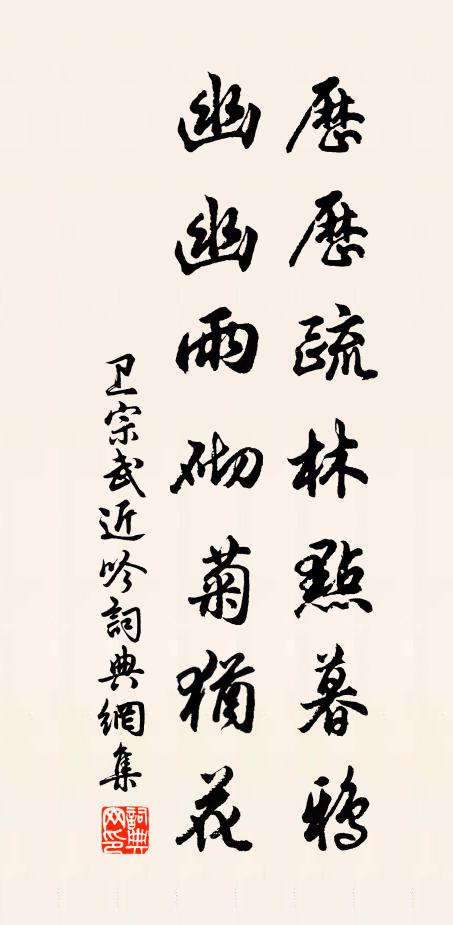 歷歷疏林點暮鴉
幽幽雨砌菊猶花
卫宗武近吟詞典網集
詞典網印